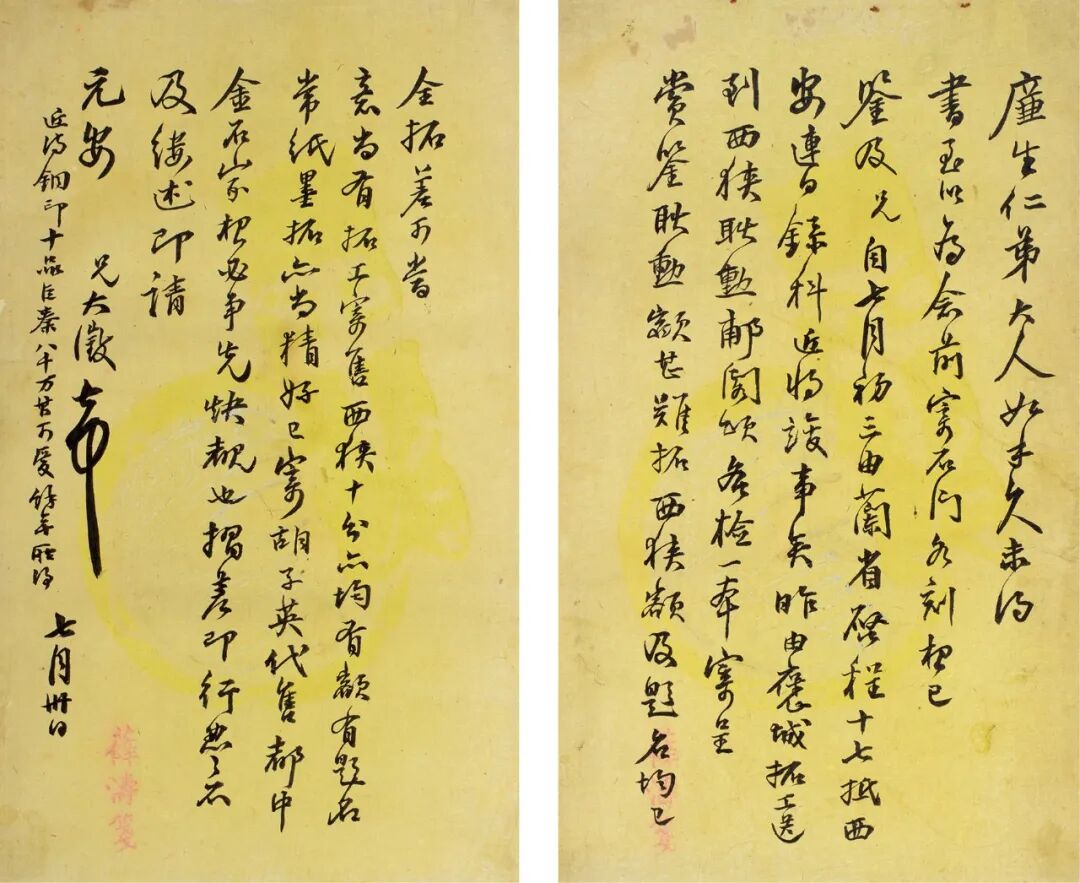 廉生仁弟大人如手久未得
書至以為念前寄石門各刻想已
鑒及兄自七月初三由蘭省啟程十七抵西
安連日錄科近將竣事矣昨由褒城拓工送
到西狹耿勳郙閣頌各檢一本寄呈
賞鑒耿勳額甚難拓西狹額及題名均已
全拓差可當
意尚有拓工寄售西狹十分亦均有額有題名
常紙墨拓亦尚精好已寄胡子英代售都中
金石家想必爭先快覩也摺差即行怱怱不
及縷述即請
元安 兄大澂頓
近得銅印十品臣秦八千万甚可愛
七月卅日
薛濤箋
薛濤箋